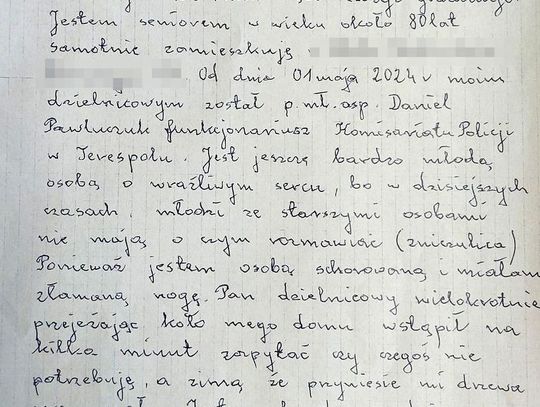 Jestem seniorem w wieku około 80 lat
samotnie zamieszkuję
. Od dnia 01 maja 2024 r moim
dzielnicowym został p. mł. asp. Daniel
Pawluczuk funkcjonariusz Komisariatu Policji
w Terespolu. Jest jeszcze bardzo młodą
osobą o wrażliwym sercu, bo w dzisiejszych
czasach, młodzi ze starszymi osobami
nie mają o czym rozmawiać (znieczulica)
Ponieważ jestem osobą schorowaną i miałam
złamaną nogę. Pan dzielnicowy wielokrotnie
przejeżając koło mego domu wstąpił na
kilka minut zapytać czy czegoś nie
potrzebuję, a zimą że przyniesie mi drzewa